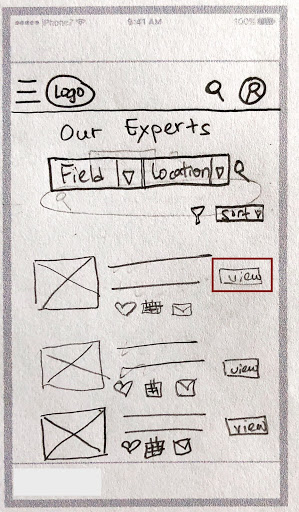 iPhone7 9:41 AM 100%
Logo R
Our Experts
Field Location
Sort
view
view
view